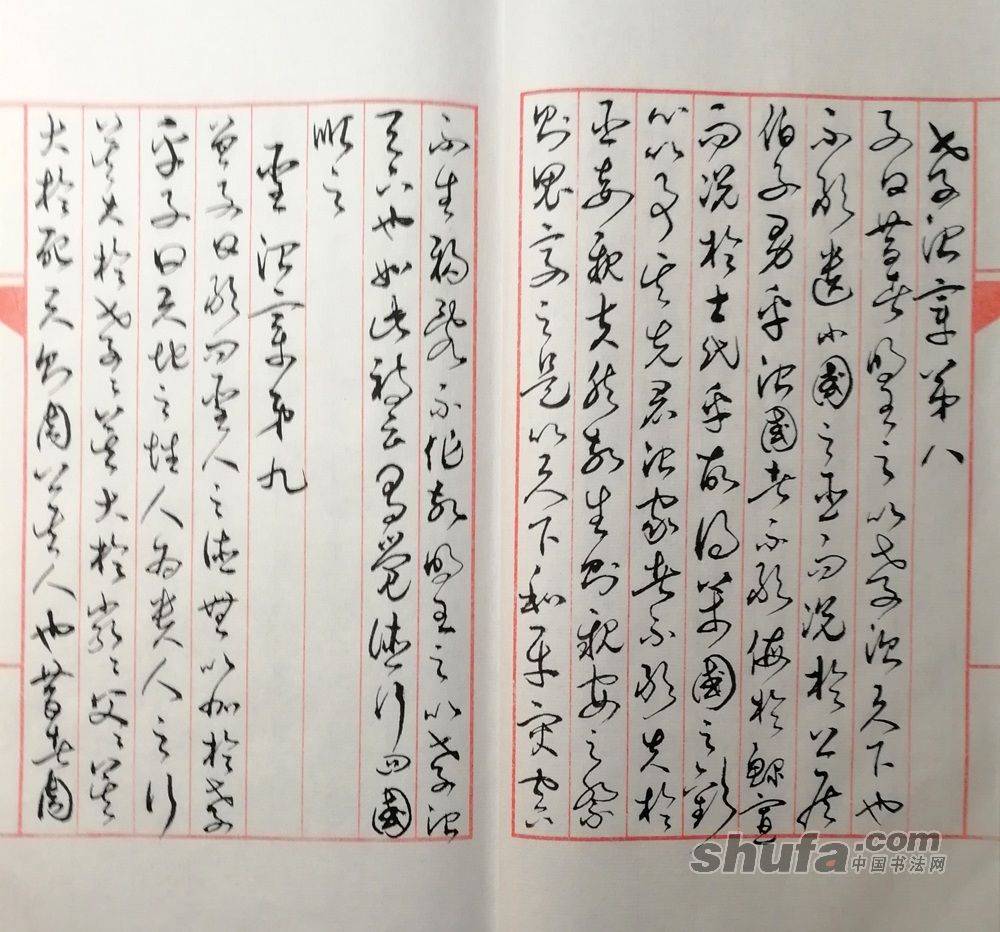 孝治章第八
子曰昔者明王之以孝治天下也
不敢遺小國之臣而況於公侯
伯子男乎治國者不敢侮於鰥寡
而況於士民乎故得萬國之歡
心以事其先君治家者不敢失於
臣妾親夫然故生則親安之祭
則鬼享之是以天下和平灾害
不生禍亂不作故明王之以孝治
天下也如此詩云有覺德行四國
順之
聖治章第九
曾子曰敢問聖人之德無以加於孝
乎子曰天地之性人為貴人之行
莫大於孝〻莫大於嚴〻父〻莫
大於配天則周公其人也昔者周
shufa.com
中国书法网